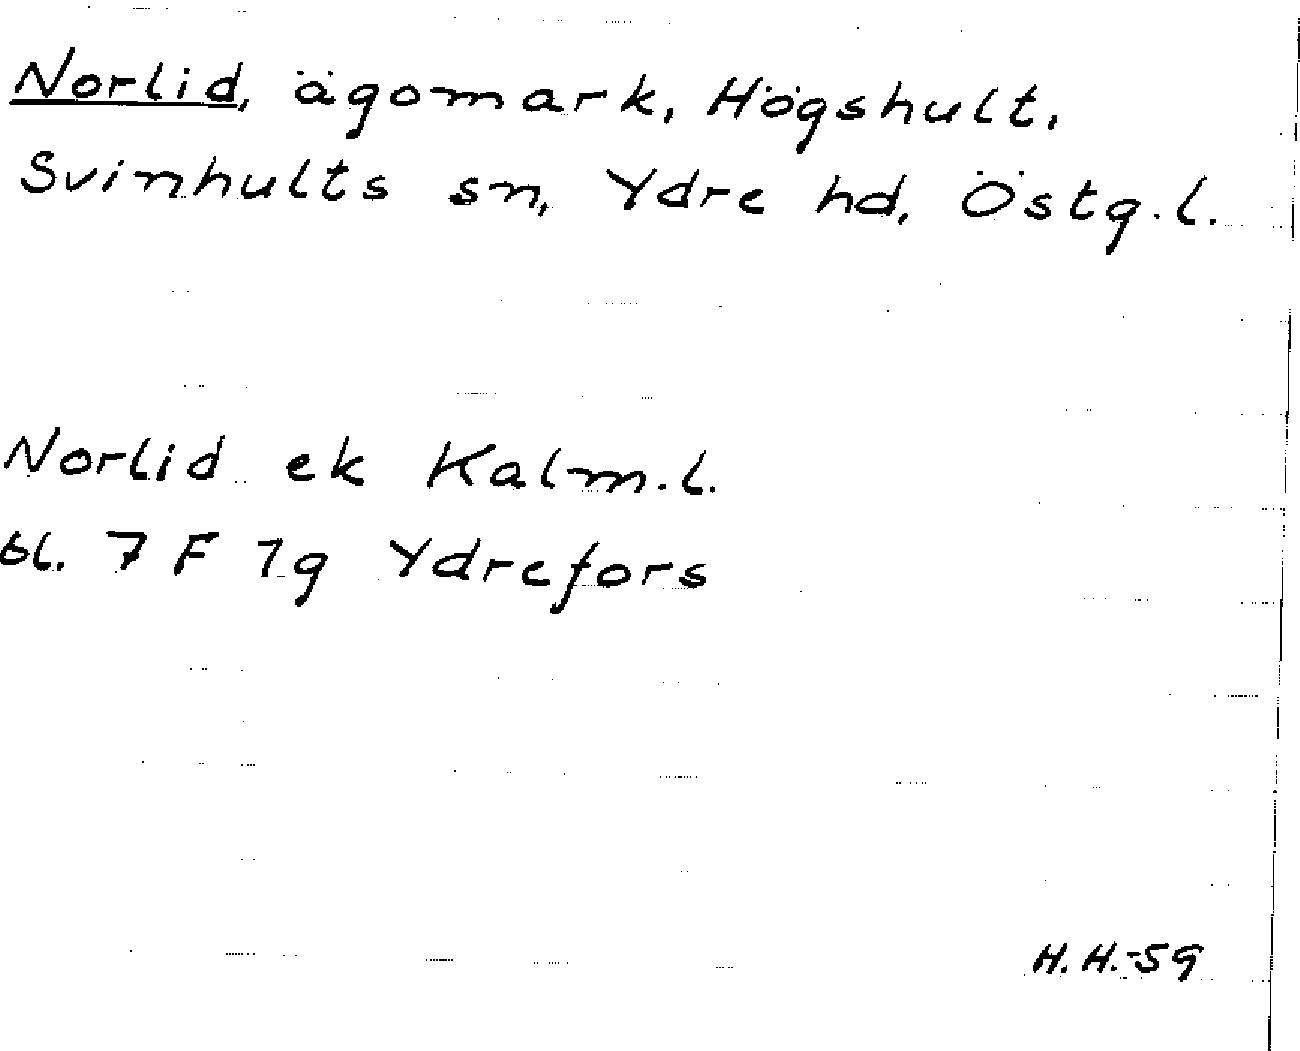 Norlid, ägomark, Högshult,
Svinhults sn, Ydre hd, Östg.l.
Norlid ek Kalm.l.
bl. 7 F 1g Ydrefors
H.H.-59